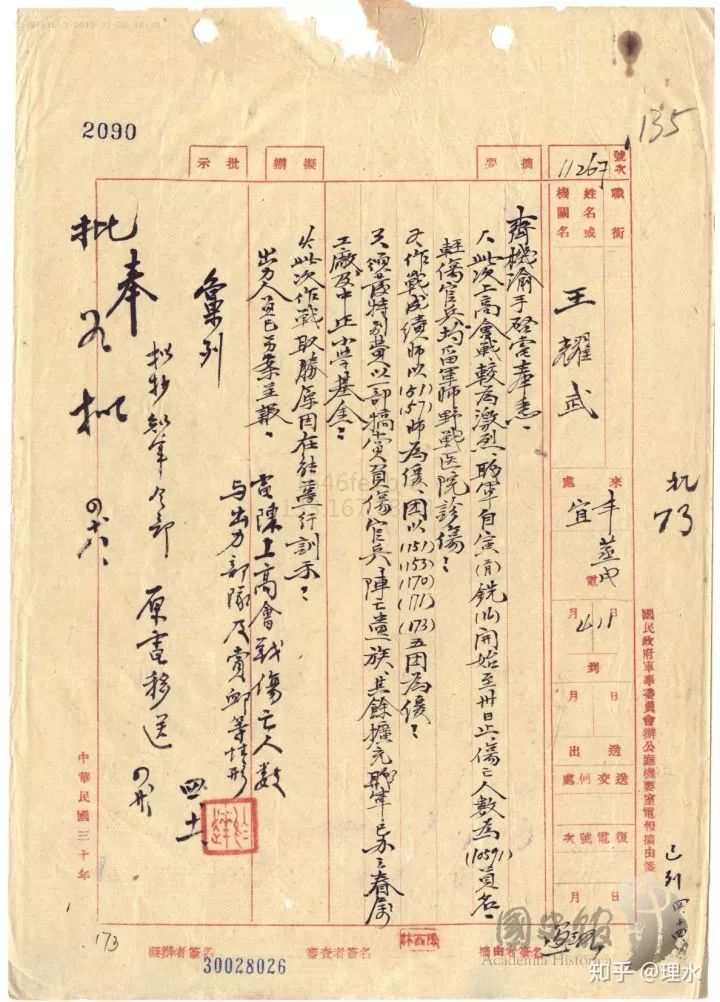 2090
135
批示
擬辦
摘要
號次
11267
職銜
姓名或
機關名
王耀武
來處
宜
電
月 日
4.11
到
月 日
送出
送交何處
復電號次
月 日
機
73
國民政府軍事委員會辦公廳機要室電報摘由箋
齊機渝手啓電奉悉、
1、此次上高會戰較為激烈、職軍自寅(月)銑(16)開始至卅日止、傷亡人數為(10591)員名、
輕傷官兵均留軍師野戰医院診傷:
2、作戰成績師以(51)(57)師為優、团以(151)(153)(170)(171)(173)五团為優:
3、頒發特別費以一部犒賞負傷官兵、陣亡遺族、其餘擴充職軍
工廠及中正小學基金:
4、此次作戰取勝原因在能遵行訓示:
出力人員已另案呈報、
電陳上高會戰傷亡人數
與出力部隊及賞卹等情形
彙列
四、十二
奉
批
擬抄知軍令部
原電移送
中華民國三十年
173
擬辦者簽名
審查者簽名
摘由者簽名
林西陵
30028026
已列
國史館
Academia Historica
知乎 @理水